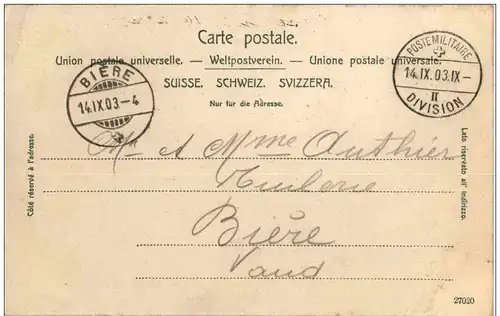 Carte postale.
Union postale universelle. — Weltpostverein. — Unione postale universale.
SUISSE. SCHWEIZ. SVIZZERA.
Nur für die Adresse.
BIÈRE
14.IX.03–4
POSTE MILITAIRE
14.IX.03.IX–
II
DIVISION
Côté réservé à l'adresse.
Lato riservato all' indirizzo.
Mr et Mme Authier
Bière
Vaud
27020